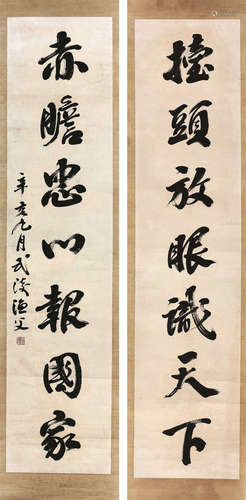 擡頭放眼識天下
赤瞻忠心報國家
辛亥九月武陵漁父